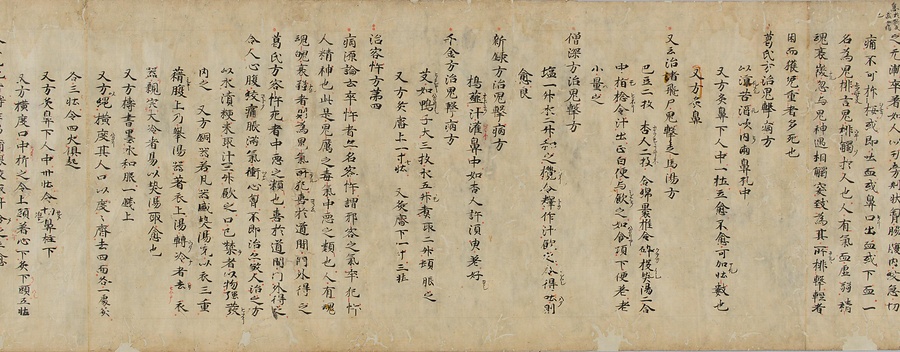 之无漸卒着如人以刀矛刺状胷脇腹内㽲急切
痛不可抑按或即吐血或鼻口出血或下血一
名為鬼排言鬼排觸於人也人有氣血虚弱精
魂衰微忽与鬼神遇相觸突致為其所排擊輕者
困而獲免重者多死也
葛氏方治鬼擊病方
以淳苦酒吹内兩鼻孔中
又方灸鼻下人中一壮立愈不愈可加壮數也
又方灸
又云治諸飛尸鬼擊走馬湯方
巴豆二枚 杏人二枚 合綿裹椎令碎投熱湯二合
中指捻令汁出正白便与飲之如食頃下便差老
小量之
僧深方治鬼擊方
塩一升水二升和之攪令釋作汁飲之令得吐則
愈良
新録方治鬼擊病方
搗薤汁灌鼻中如杏人許須臾差好
千金方治鬼擊病方
艾如鴨子大三枚水五升煮取二升頓服之
又方灸臍上一寸七壮 又灸臍下一寸三壮
治客忤方第四
病源論云卒忤者亦名客忤謂邪客之氣卒犯忤
人精神也此是鬼厲之毒氣中惡之類也人有魂
魄衰弱者則為鬼氣所犯忤喜於道間門外得之
葛氏方客忤死者中惡之類也喜於道間門外得之
令人心腹絞痛脹滿氣衝心胷不即治亦致人治之方
以水漬粳米取汁二升飲之口已禁者以物强發
内之 又方銅器若凡器盛熱湯先以衣三重
藉腹上乃舉湯器著衣上湯轉冷者去衣
器親完大冷者易以熱湯取愈也
又方擣書墨水和服一錢上
又方繩橫度其人口以度度臍去四面各一處灸
各三壮令四火俱起
又方灸鼻下人中卅壮令切鼻柱下
又方橫度口中折之令上頭着心下灸下頭五壮